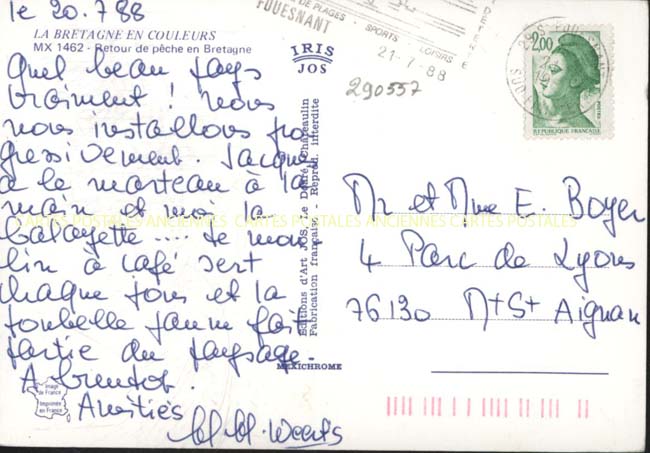 le 20.7.88
LA BRETAGNE EN COULEURS
MX 1462 - Retour de pêche en Bretagne
Quel beau pays
vraiment ! nous
nous installons pro
gressivement. Jacques
a le marteau à la
main et moi la
balayette .... Le mou
lin à café sert
chaque jour et la
poubelle jaune fait
partie du paysage.
A bientôt.
Amitiés
IRIS
JOS
Editions d'Art JOS, Le Doaré, Châteaulin
Fabrication française - Reprod. interdite
MEXICHROME
Image de France
Imprimée en France
FOUESNANT
PLAGES - SPORTS - LOISIRS
21-7-88
290557
2,00
POSTES
REPUBLIQUE FRANÇAISE
Mr et Mme E. Boyer
4 Parc de Lyons
76130 Mt St Aignan
CARTES POSTALES ANCIENNES CARTES POSTALES ANCIENNES CARTES POSTALES